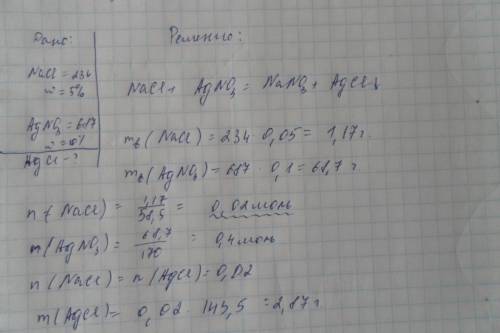 Дано:
Решение:
NaCl = 234
w = 5%
AgNO₃ = 687
w = 10%
AgCl - ?
NaCl + AgNO₃ = NaNO₃ + AgCl↓
mв (NaCl) = 234 · 0,05 = 1,17 г
mв (AgNO₃) = 687 · 0,1 = 68,7 г
n (NaCl) = 1,17/58,5 = 0,02 моль
n (AgNO₃) = 68,7/170 = 0,4 моль
n (NaCl) = n (AgCl) = 0,02
m (AgCl) = 0,02 · 143,5 = 2,87 г